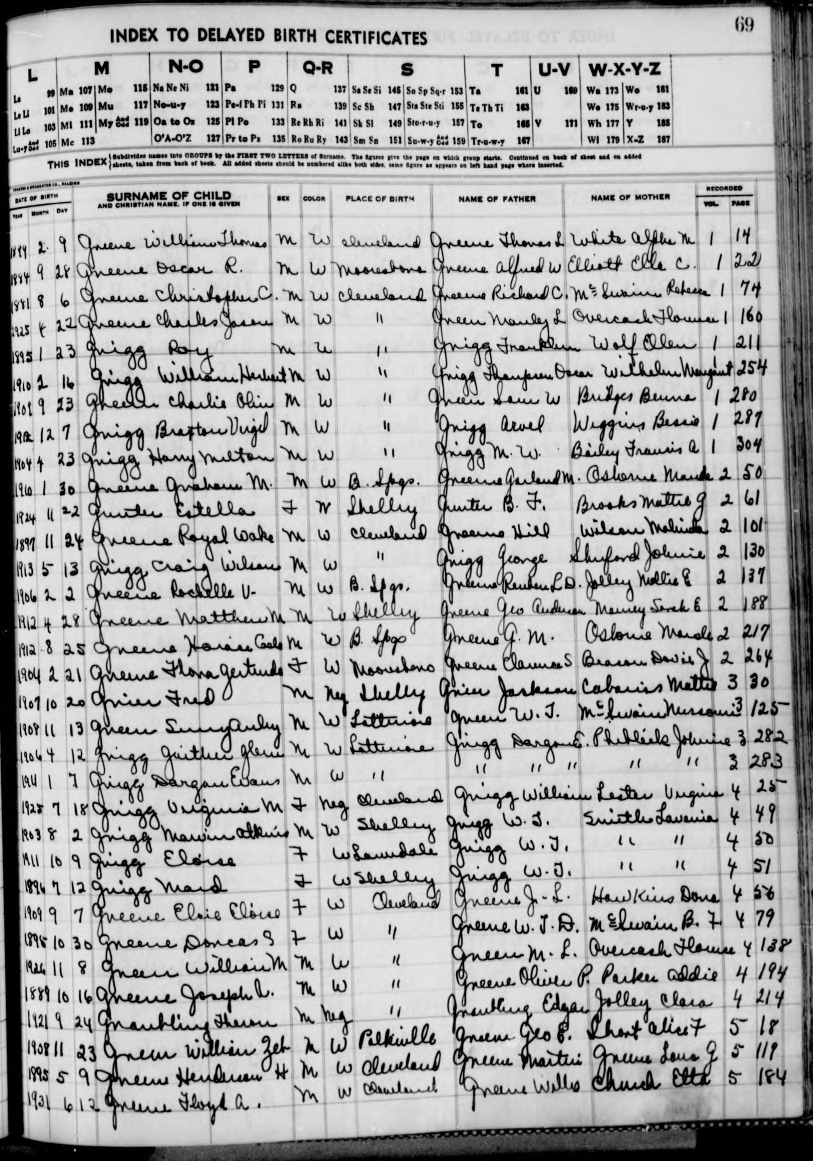 69
INDEX TO DELAYED BIRTH CERTIFICATES
L M N-O P Q-R S T U-V W-X-Y-Z
La 99 Ma 107 Mo 115 Na Ne Ni 121 Pa 129 Q 137 Sa Se Si 145 So Sp Sq-r 153 Ta 161 U 169 Wa 173 Wo 181
Le Li 101 Me 109 Mu 117 No-u-y 123 Pe-f Ph Pi 131 Ra 139 Sc Sh 147 Sta Ste Sti 155 Te Th Ti 163 We 175 Wr-u-y 183
Ll Lo 103 Mi 111 My And Odd 119 Oa to Os 125 Pl Po 133 Re Rh Ri 141 Sk Sl 149 Sto-r-u-y 157 To 165 V 171 Wh 177 Y 185
Lu-y And Odd 105 Mc 113 O'A-O'Z 127 Pr to Pz 135 Ro Ru Ry 143 Sm Sn 151 Su-w-y And Odd 159 Tr-u-w-y 167 Wi 179 X-Z 187
THIS INDEX Subdivides names into GROUPS by the FIRST TWO LETTERS of Surname. The figures give the page on which group starts. Continued on back of sheet and on added
sheets, taken from back of book. All added sheets should be numbered alike both sides, same figure as appears on left hand page where inserted.
DATE OF BIRTH SURNAME OF CHILD SEX COLOR PLACE OF BIRTH NAME OF FATHER NAME OF MOTHER RECORDED
YEAR MONTH DAY AND CHRISTIAN NAME, IF ONE IS GIVEN VOL. PAGE
2 9 Greene William Thomas M W Cleveland Greene Thomas L White Alpha M 1 14
1884 9 28 Greene Oscar R. M W Mooresboro Greene Alfred W Elliott Ella C. 1 22
1881 8 6 Greene Christopher C. M W Cleveland Greene Richard C. McSwain Rebecca 1 74
1925 4 22 Greene Charles Jason M W " Green Manley L Overcash Florence 1 160
1895 1 23 Grigg Roy M W " Grigg Franklin Wolf Ollen 1 211
1910 2 16 Grigg William Herbert M W " Grigg Thompson Oscar Wilhelm Margaret 254
9 23 Green Charlie Olin M W " Green Sam W Bridges 1 280
12 7 Grigg Braxton Virgil M W " Grigg Wiggins Bessie 1 287
1904 4 23 Grigg Harry Milton M W " Grigg M. W. Bailey Francis A 1 304
1910 1 30 Greene Graham M. M W B. Spgs. Greene Garland M. Osborne Maude 2 50
1924 11 22 Gunter Estella F W Shelby Gunter B. F. Brooks Mattie G 2 61
1897 11 24 Greene Royal Wake M W Cleveland Greene Hill Wilson Malinda 2 101
1913 5 13 Grigg Craig Wilson M W " Grigg George Shuford Johnie 2 130
1906 2 2 Greene Rochelle V. M W B. Spgs. Greene Reuben L.D. Jolley Mollie E 2 137
1912 4 28 Greene Matthew M M W Shelby Greene Geo Anderson Mauney Sarah E 2 188
1912 8 25 Greene Horace M W B. Spgs Greene G. M. Osborne Maude 2 217
1904 2 21 Greene Flora Gertrude F W Mooresboro Greene Clarence S Beason Davie J 2 264
1907 10 20 Grier Fred M Neg Shelby Grier Jackson Cabaniss Mattie 3 30
1908 11 13 Green M W Lattimore Green W. T. McSwain 3 125
1906 4 12 Grigg Gaither Glenn M W Lattimore Grigg Dargan E. Philbeck Johnie 3 282
1 7 Grigg Dargan Evans M W " " " " " " 3 283
1925 7 18 Grigg Virginia M F Neg Cleveland Grigg William Lester Virginia 4 25
1903 8 2 Grigg Marvin Atkins M W Shelby Grigg W. T. Smith Lavenia 4 49
1911 10 9 Grigg Eloise F W Lawndale Grigg W. T. " " 4 50
1896 7 12 Grigg Maud F W Shelby Grigg W. T. " " 4 51
1909 9 7 Greene Elsie Eloise F W Cleveland Greene J. L. Hawkins Dora 4 56
1898 10 30 Greene Dorcas S F W " Greene W. T. D. McSwain B. F 4 79
1926 11 8 Green William M M W " Green M. L. Overcash Florence 4 138
1889 10 16 Greene Joseph M W " Greene Oliver P. Parker Addie 4 194
1921 9 24 Grambling Theron M Neg " Grambling Edgar Jolley Clara 4 214
1908 11 23 Green William Zeb M W Polkville Greene Geo E. Short Alice F 5 18
1895 5 9 Greene Henderson H M W Cleveland Greene Martin Greene Lona G 5 119
1931 6 12 Greene Floyd A. M W Cleveland Greene Willis Church Etta 5 184